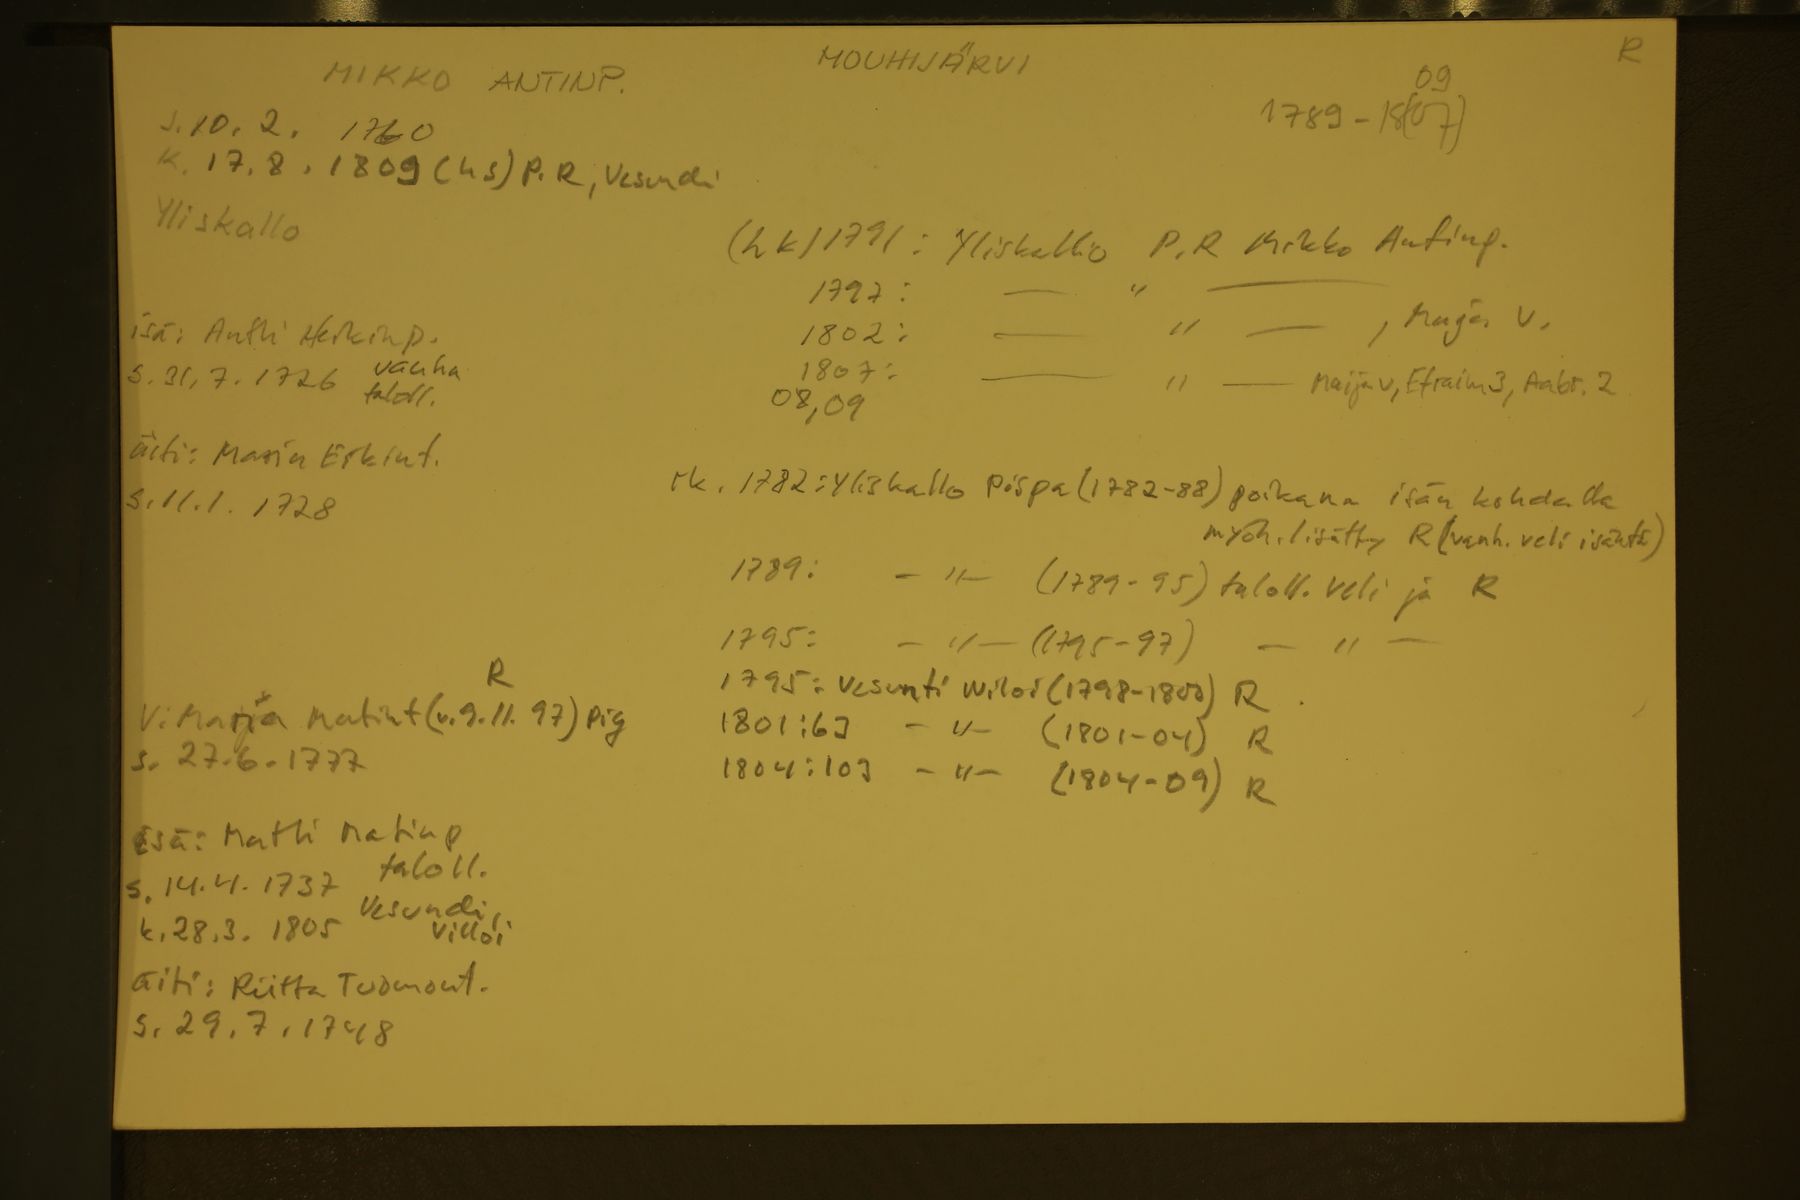 MIKKO ANTINP.
MOUHIJÄRVI
R
09
1789-18(07)
s. 10. 2. 1760
k. 17.8. 1809 (hs) P.R, Vesundi
Yliskallo
isä: Antti Heikinp.
s. 31.7. 1726 vanha
taloll.
äiti: Maria Erkint.
s. 11.1. 1728
R
V: Marja Matint (v. 9.11. 97) pig
s. 27.6. 1777
isä: Matti Matinp
taloll.
s. 14.4. 1737
Vesundi,
k. 28.3. 1805
Villoi
äiti: Riitta Tuomont.
s. 29.7. 1748
(hk) 1791: Yliskallio P.R Mikko Antinp.
1797: — " —
1802: — " — , Maija V.
1807: — " — Maija v, Efraim 3, Aabr. 2
08,09
rk. 1782: Yliskallo Pispa (1782-88) poikana isän kohdalla
myöh. lisätty R (vanh. veli isäntä)
1789: — " — (1789-95) taloll. veli ja R
1795: — " — (1795-97) — " —
1795: Vesunti Wiloi (1798-1800) R
1801:63 — " — (1801-04) R
1804:103 — " — (1804-09) R